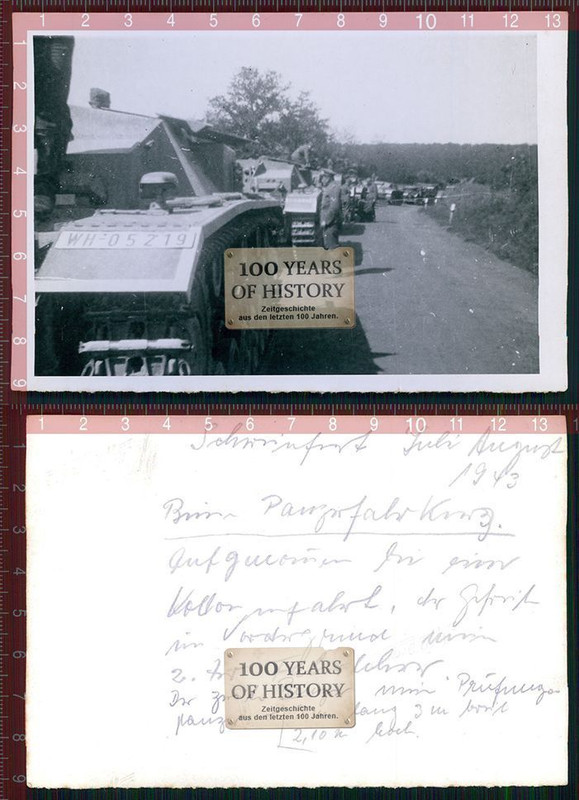 1 2 3 4 5 6 7 8 9 10 11 12 13
1 2 3 4 5 6 7 8 9
WH-05219
100 YEARS
OF HISTORY
Zeitgeschichte
aus den letzten 100 Jahren.
1 2 3 4 5 6 7 8 9 10 11 12 13
Schweinfurt Juli August
1943
Beim Panzerfahr Kurs.
Aufgenommen bei einer
Kolonnenfahrt, der Gefreite
im Vordergrund mein
2.
100 YEARS
OF HISTORY
Zeitgeschichte
aus den letzten 100 Jahren.
Der mein Prüfungs
panz lang 3 m breit
2,10 m hoch.